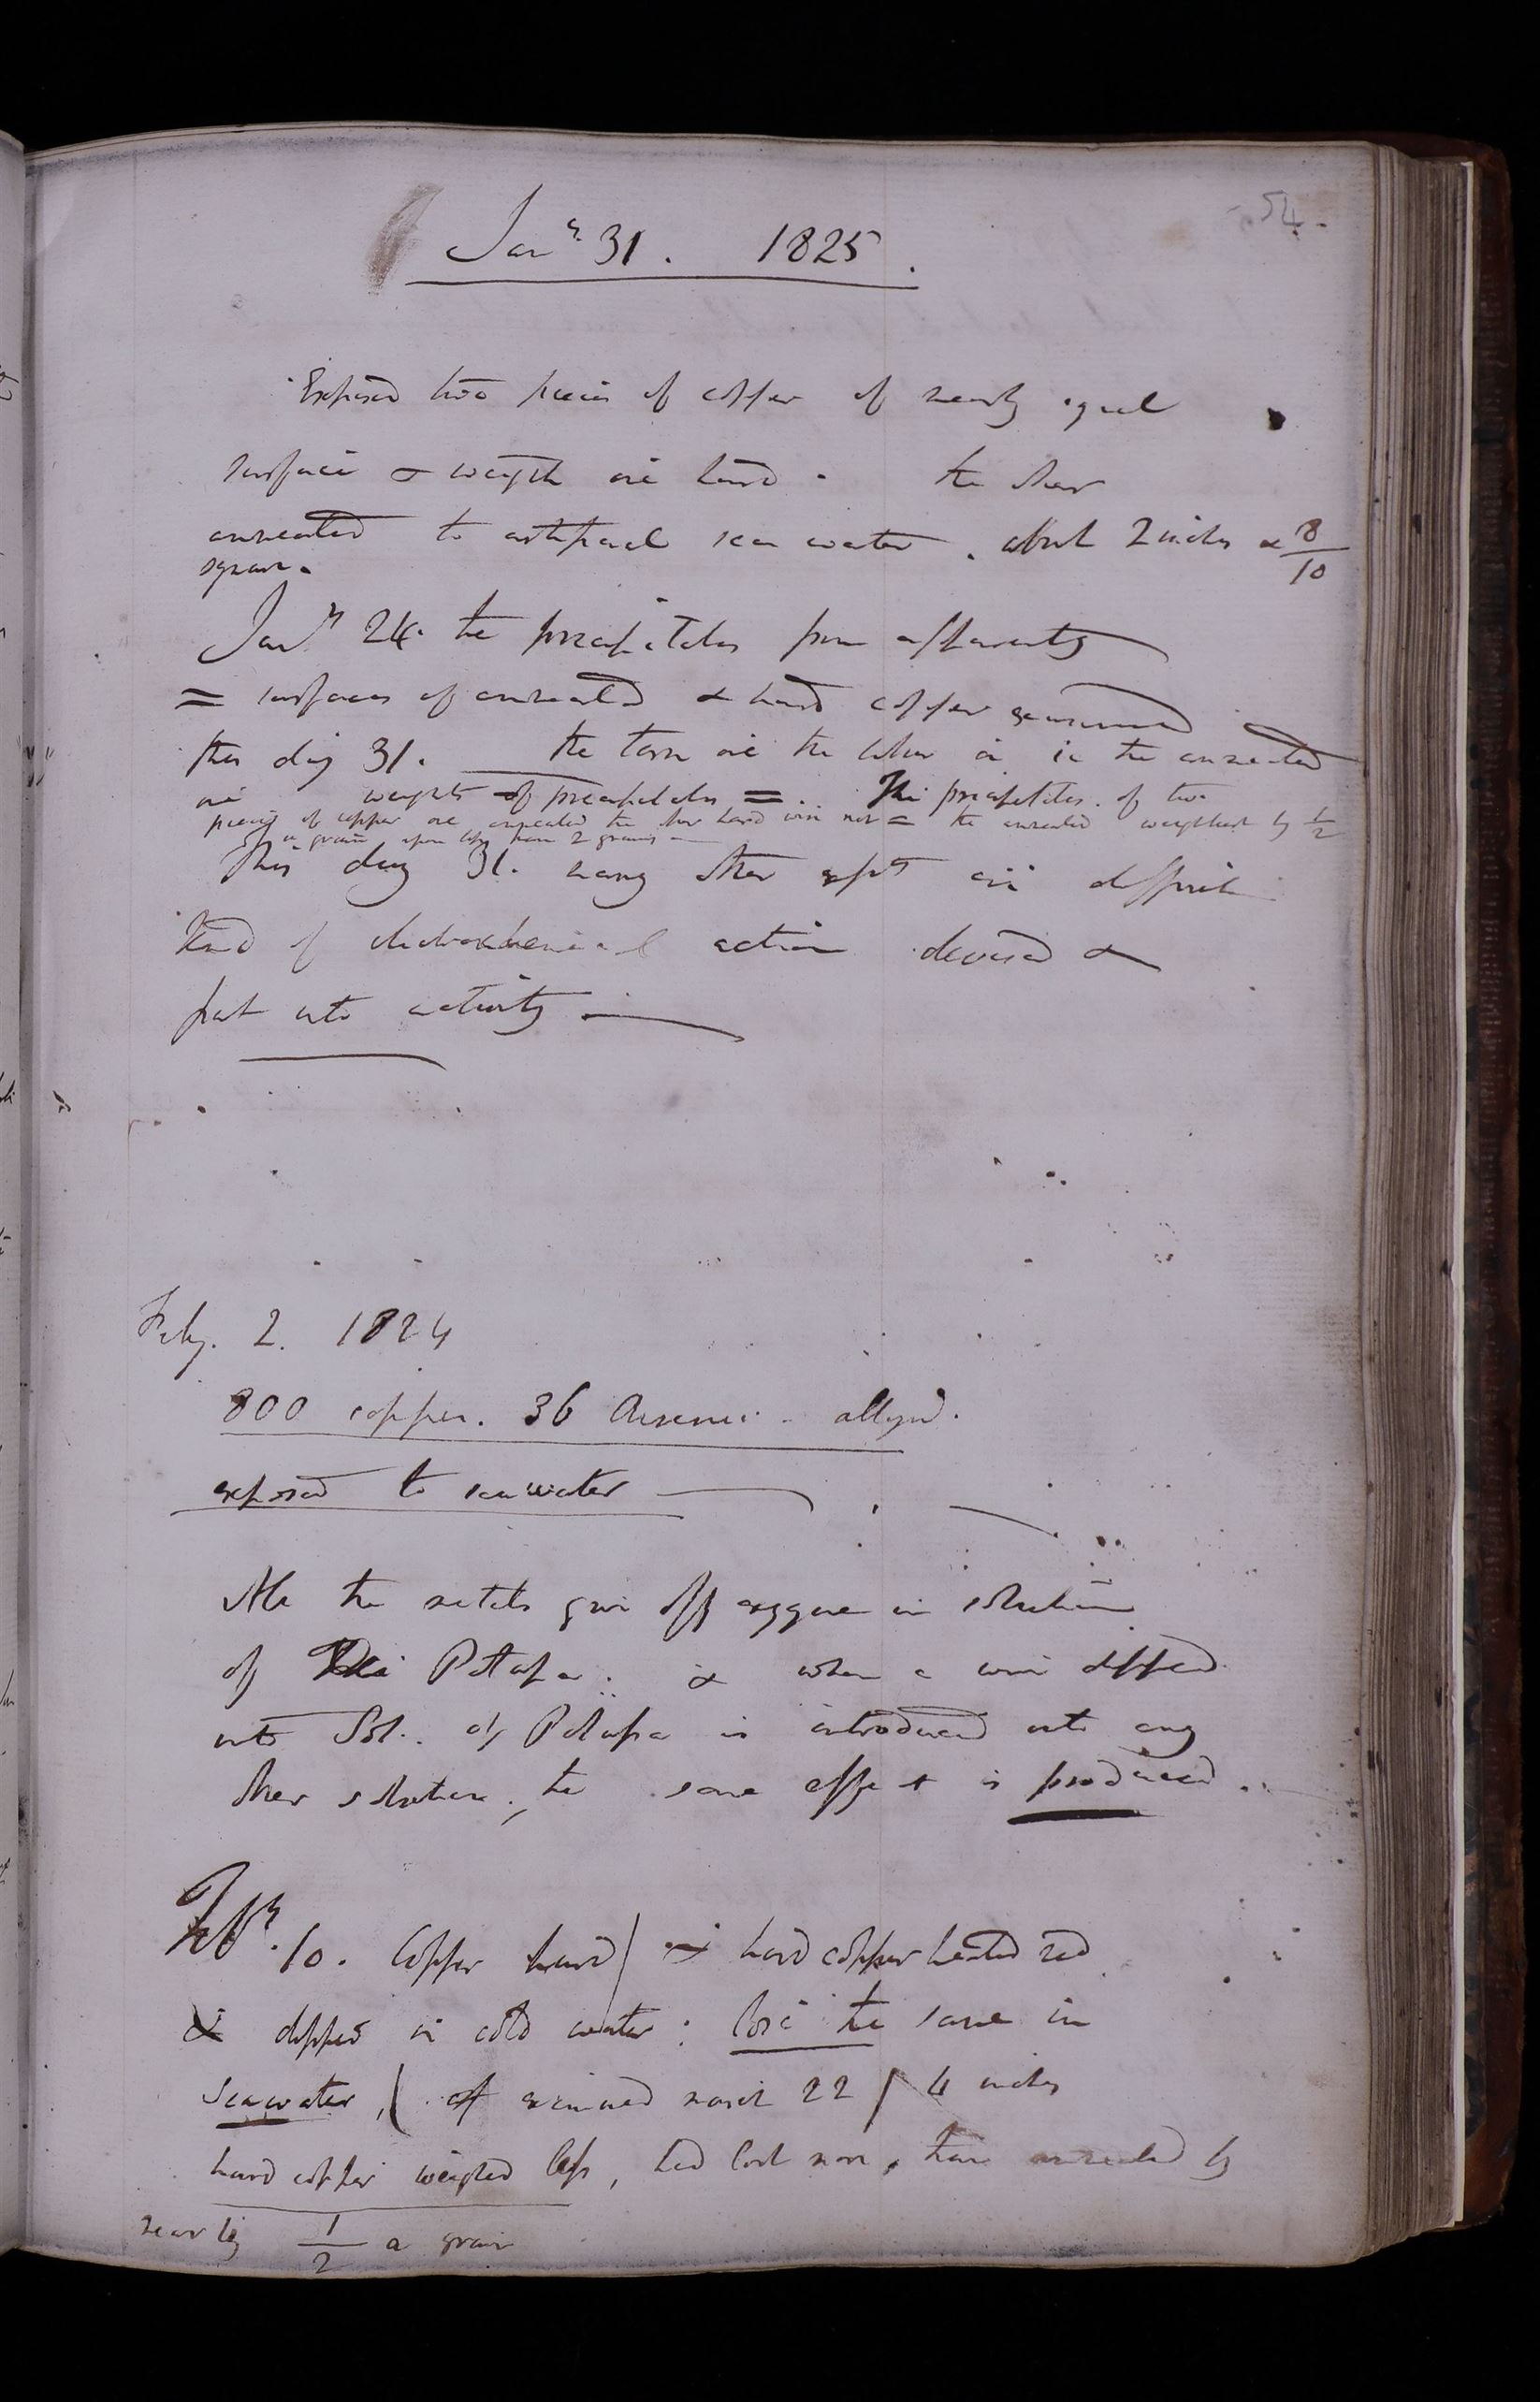 54.
Jany. 31. 1825.
Exposed two pieces of copper of nearly equal
surface & weight one hard - the other
annealed to artificial sea water. about 2 inches & 8/10
square.
Jany 24. the precipitates from apparently
= surfaces of annealed & hard copper examined
this day 31. the turn one the other in is the annealed
one weights of precipitates = .. The precipitates. of two
pieces of copper one annealed the other hard were not = the annealed weightiest by 1/2
a grain upon less than 2 grains —
This day 31. many other expts on different
kind of electrochemical action devised &
put into activity —
Feby. 2. 1824
800 copper. 36 Arsenic - alloyd.
exposed to seawater —
All the metals give off oxygene in solution
of Potassa. & when a wire dipped
into Sol.. of Potassa is introduced into any
other solution, the same effect is produced..
Feby. 10. Copper hard / & hard copper heated red
& dipped in cold water: lose the same in
Seawater, ( examined march 22 / 4 inches
hard copper weighed less, had lost more, than annealed by
nearly 1/2 a grain